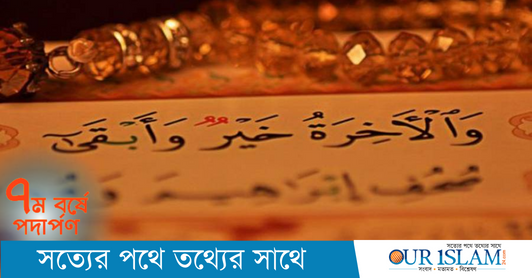 وَٱلْأَخِرَةُ خَيْرٌ وَأَبْقَىٰٓ
صُحُفِ إِبْرَاهِيمَ
৭ম বর্ষে
পদার্পণ
সত্যের পথে তথ্যের সাথে
সত্যের পথে তথ্যের সাথে
OUR ISLAM
সংবাদ • মতামত • বিশ্লেষণ